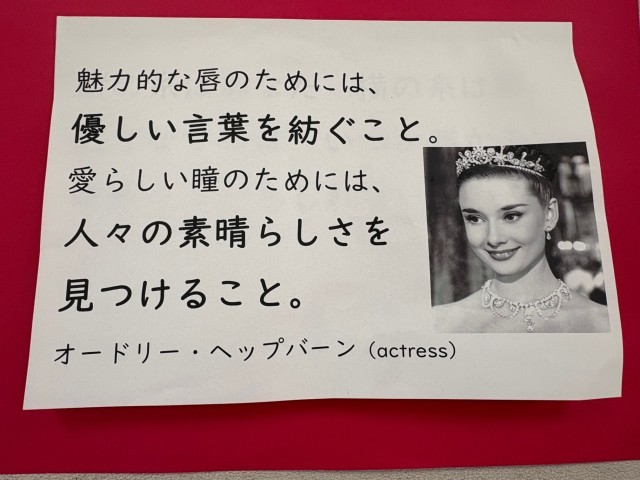 魅力的な唇のためには、
優しい言葉を紡ぐこと。
愛らしい瞳のためには、
人々の素晴らしさを
見つけること。
オードリー・ヘップバーン（actress）